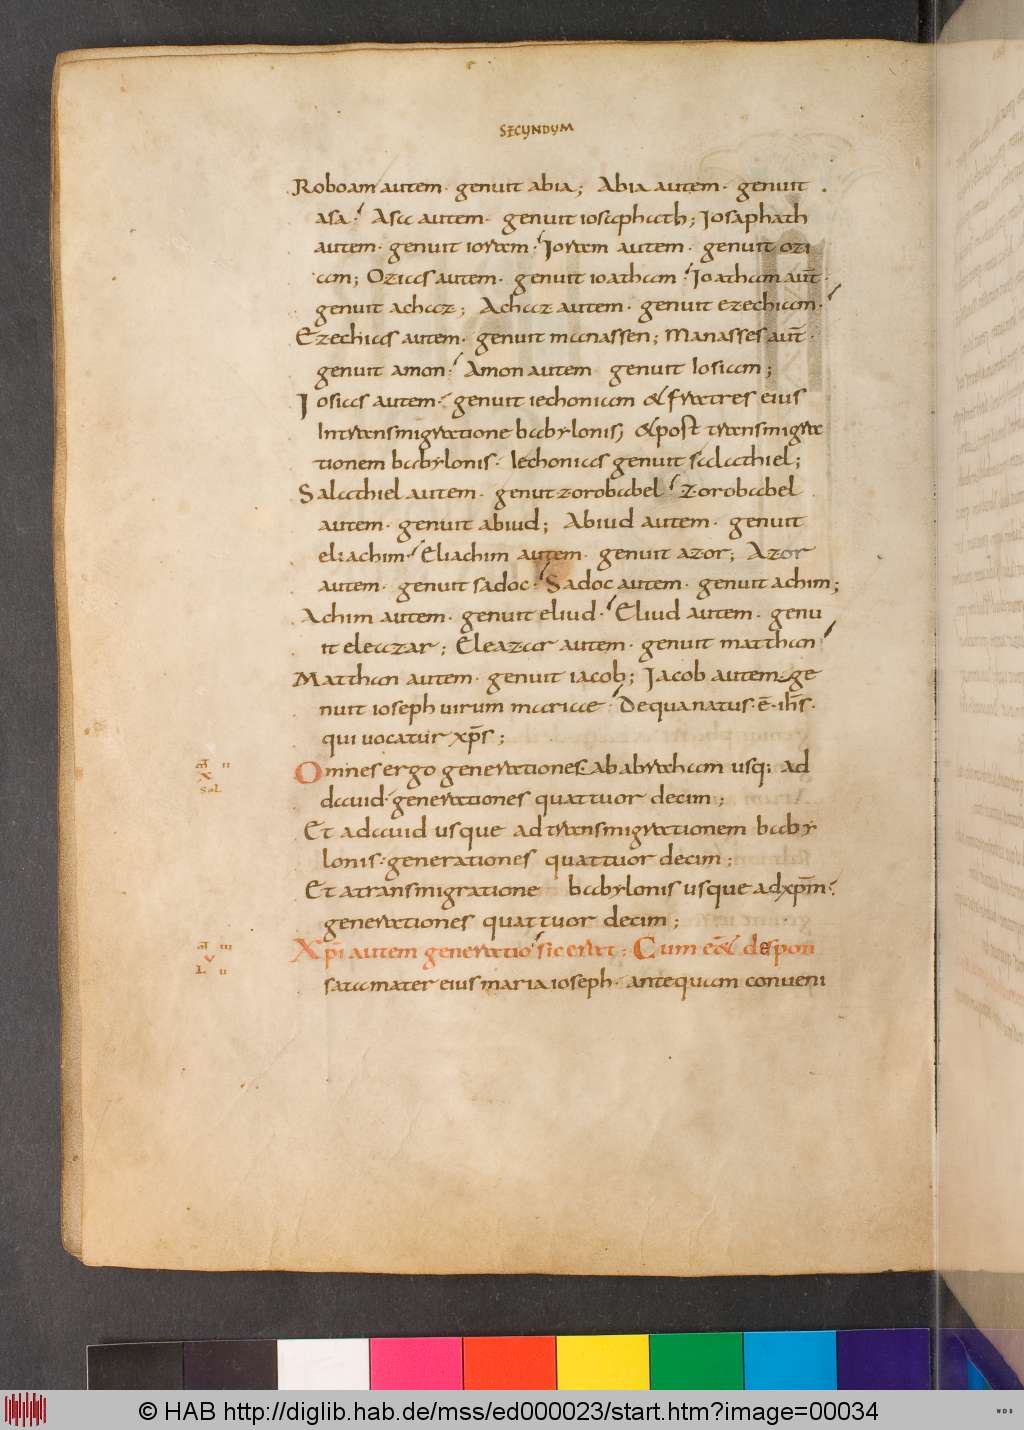 SECUNDUM
Roboam autem· genuit abia; Abia autem· genuit
asa· Asa autem· genuit iosaphath; Iosaphath
autem· genuit ioram· Ioram autem· genuit ozi
am; Ozias autem· genuit ioatham· Ioatham aut̄·
genuit achaz; Achaz autem· genuit ezechiam·
Ezechias autem· genuit manassen; Manasses aut̄·
genuit amon· Amon autem genuit Iosiam;
Iosias autem· genuit iechoniam & fratres eius
Intransmigratione babylonis; & post transmigra
tionem babylonis· Iechonias genuit salathiel;
Salathiel autem· genut zorobabel· Zorobabel
autem· genuit abiud; Abiud autem· genuit
eliachim· Eliachim autem· genuit azor; Azor
autem· genuit sadoc· Sadoc autem· genuit achim;
Achim autem· genuit eliud· Eliud autem· genu
it eleazar; Eleazar autem· genuit matthan
Matthan autem· genuit iacob; Jacob autem ge
nuit ioseph uirum mariae· De qua natus· ē· ih̄s·
qui uocatur xp̄s;
aT II
X
SoL
Omnes ergo generationes· ab abraham usq; ad
dauid· generationes quattuor decim;
Et adauid usque ad transmigrationem baby
lonis· generationes quattuor decim;
Et atransmigratione babylonis usque adxp̄m·
generationes quattuor decim;
aT III
V
L II
Xp̄i autem generatio sic erat: Cum e&̄ despon
sata mater eius maria ioseph· antequam conueni
© HAB http://diglib.hab.de/mss/ed000023/start.htm?image=00034
WDB